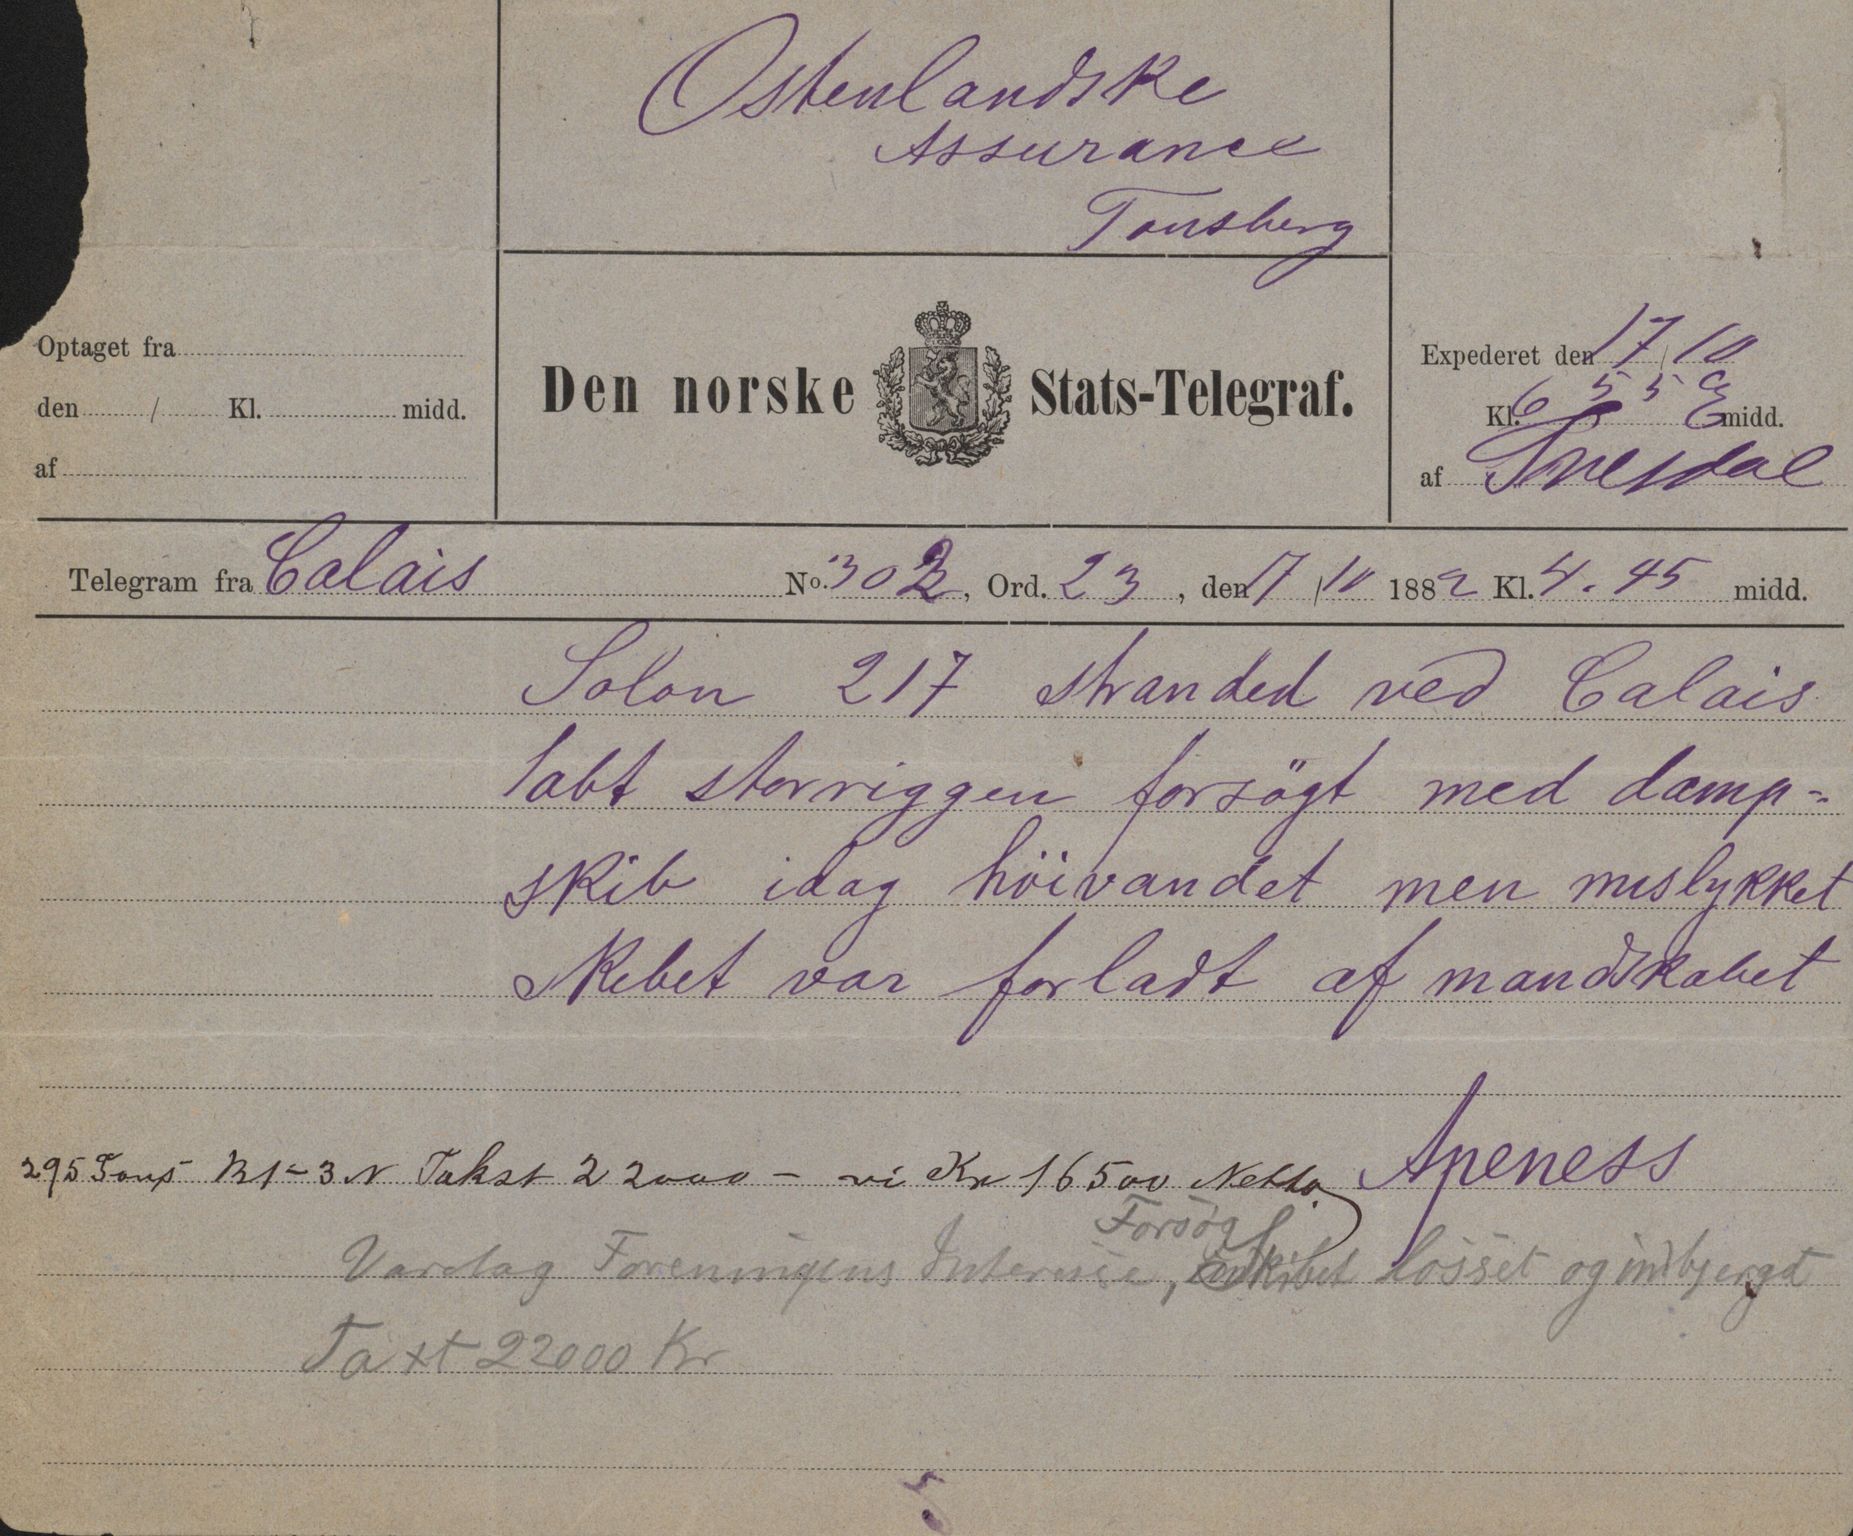 Ostenlandske
Assurance
Tonsberg
Optaget fra
den / Kl. midd.
af
Den norske Stats-Telegraf.
Expederet den 17/10
Kl. 6 55 E midd.
af
Telegram fra Calais No. 302, Ord. 23, den 17/10 1882 Kl. 4.45 midd.
Solon 217 stranded ved Calais
tabt storriggen forsögt med damp-
skib idag höivandet men mislykket
skibet var forladt af mandskabet
295 Tons B1-3N Takst 22000 - vi Kr 16500 Netto. Apeness
Forsøg
Varetag Foreningens Interesse, skibet losset og indbjerget
Taxt 22000 Kr